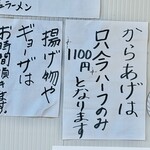 からあげは
只今ハーフのみ
1100円
となります
揚げ物や
ギョーザは
お時間頂きます
ラーメン